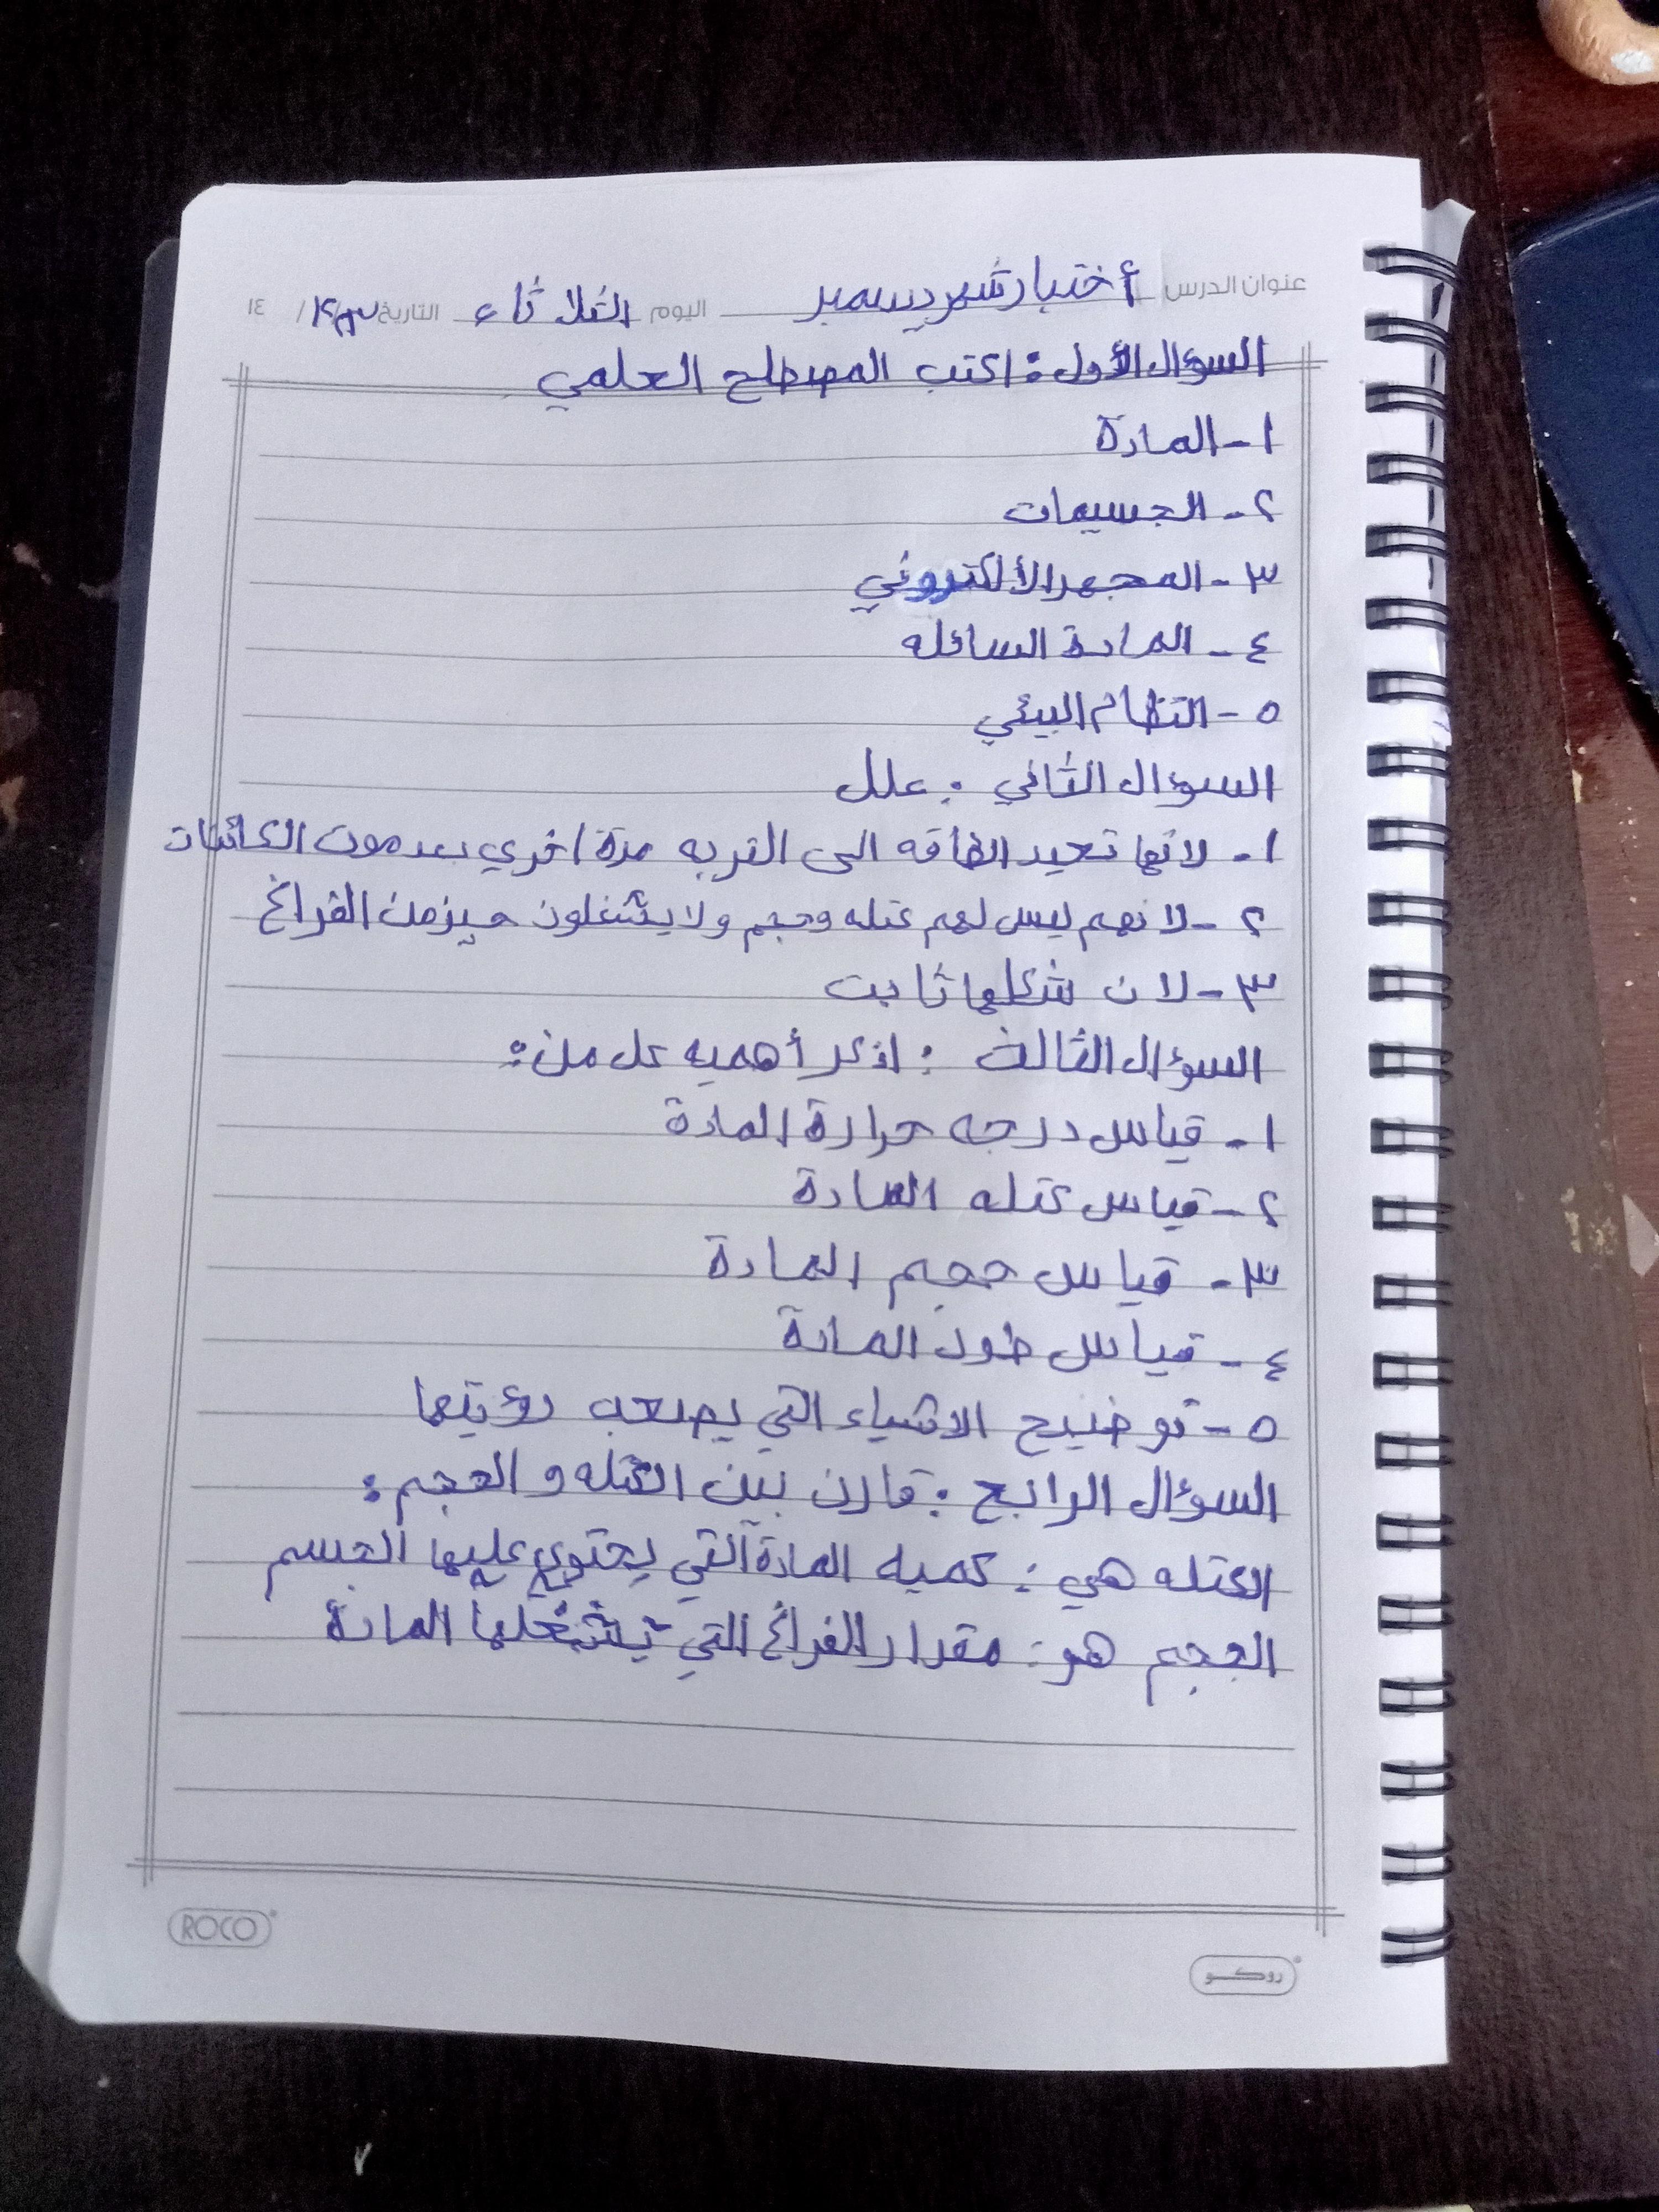 عنوان الدرس أختبار شهر ديسمبر اليوم الثلاثاء التاريخ / ١٤
السؤال الأول : اكتب المصطلح العلمي
١- المادة
٢- الجسيمات
٣- المجهر الألكتروني
٤- المادة السائله
٥- النظام البيئي
السؤال الثاني : علل
١- لانها تعيد الطاقه الى التربه مرة اخري بعد موت الكائنات
٢- لانهم ليس لهم كتله وحجم ولا يشغلون حيز من الفراغ
٣- لان شكلها ثابت
السؤال الثالث : اذكر أهميه كل من :
١- قياس درجه حرارة المادة
٢- قياس كتله المادة
٣- قياس حجم المادة
٤- قياس طول المادة
٥- توضيح الاشياء التي يصعب رؤيتها
السؤال الرابع : قارن بين الكتله و الحجم :
الكتله هي : كميه المادة التي يحتوي عليها الجسم
الحجم هو : مقدار الفراغ التي تشغلها المادة
ROCO
روكو